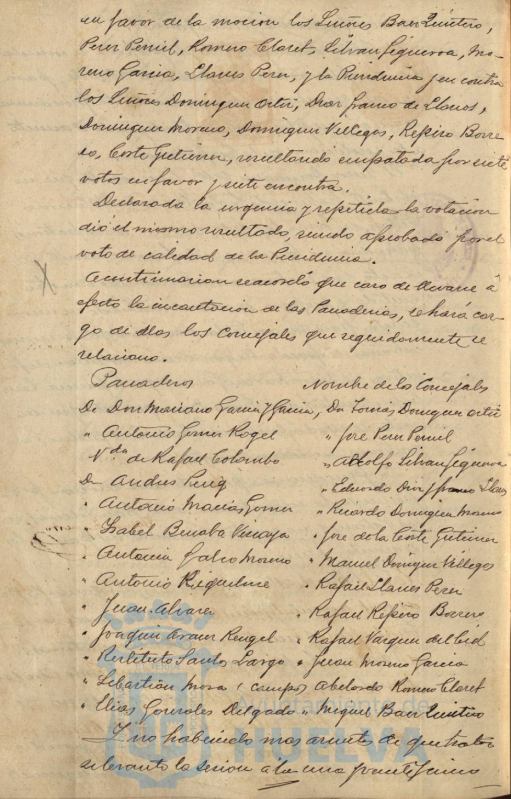 en favor de la mocion los Señores Baez Quintero,
Perez Peniel, Romero Claret, Silvan Figueroa, Mo-
reno Garcia, Llanes Perez, y la Presidencia y en contra
los Señores Dominguez Ortiz, Diaz Franco de Llanos,
Dominguez Moreno, Dominguez Villegas, Repiso Borre
ro, Corte Gutierrez, resultando empatada por siete
votos en favor y siete encontra.
Declarada la urgencia y repetida la votacion
dió el mismo resultado, siendo aprobado por el
voto de calidad de la Presidencia.
A continuacion se acordó que caso de llevarse á
efecto la incautacion de las Panaderias, se hará car-
go de ellas los Concejales que seguidamente se
relacionan.
Panaderos Nombre de los Concejales
De Don Mariano Garcia y Garcia, Dn Tomás Dominguez Ortiz
" Antonio Gomez Rogel " Jose Perez Peniel
Vda de Rafael Colombo " Adolfo Silvan Figueroa
Dn Andres Puig " Eduardo Diaz Franco Llanos
" Antonio Macias Gomez " Ricardo Dominguez Moreno
" Isabel Vizcaya " Jose de la Corte Gutierrez
" Antonia Galvo Moreno " Manuel Dominguez Villegas
" Antonio " Rafael Llanes Perez
" Juan Alvarez " Rafael Repiso Borrero
" Joaquin Rengel " Rafael Vazquez del Cid
" Restituto Santos Largo " Juan Moreno Garcia
" Sebastián Mora (campo) Abelardo Romero Claret
" Elias Gonzales Delgado " Miguel Baez Quintero
Y no habiendo mas asuntos de que tratar
se levanto la sesion á la una
Ayuntamiento de
HUELVA